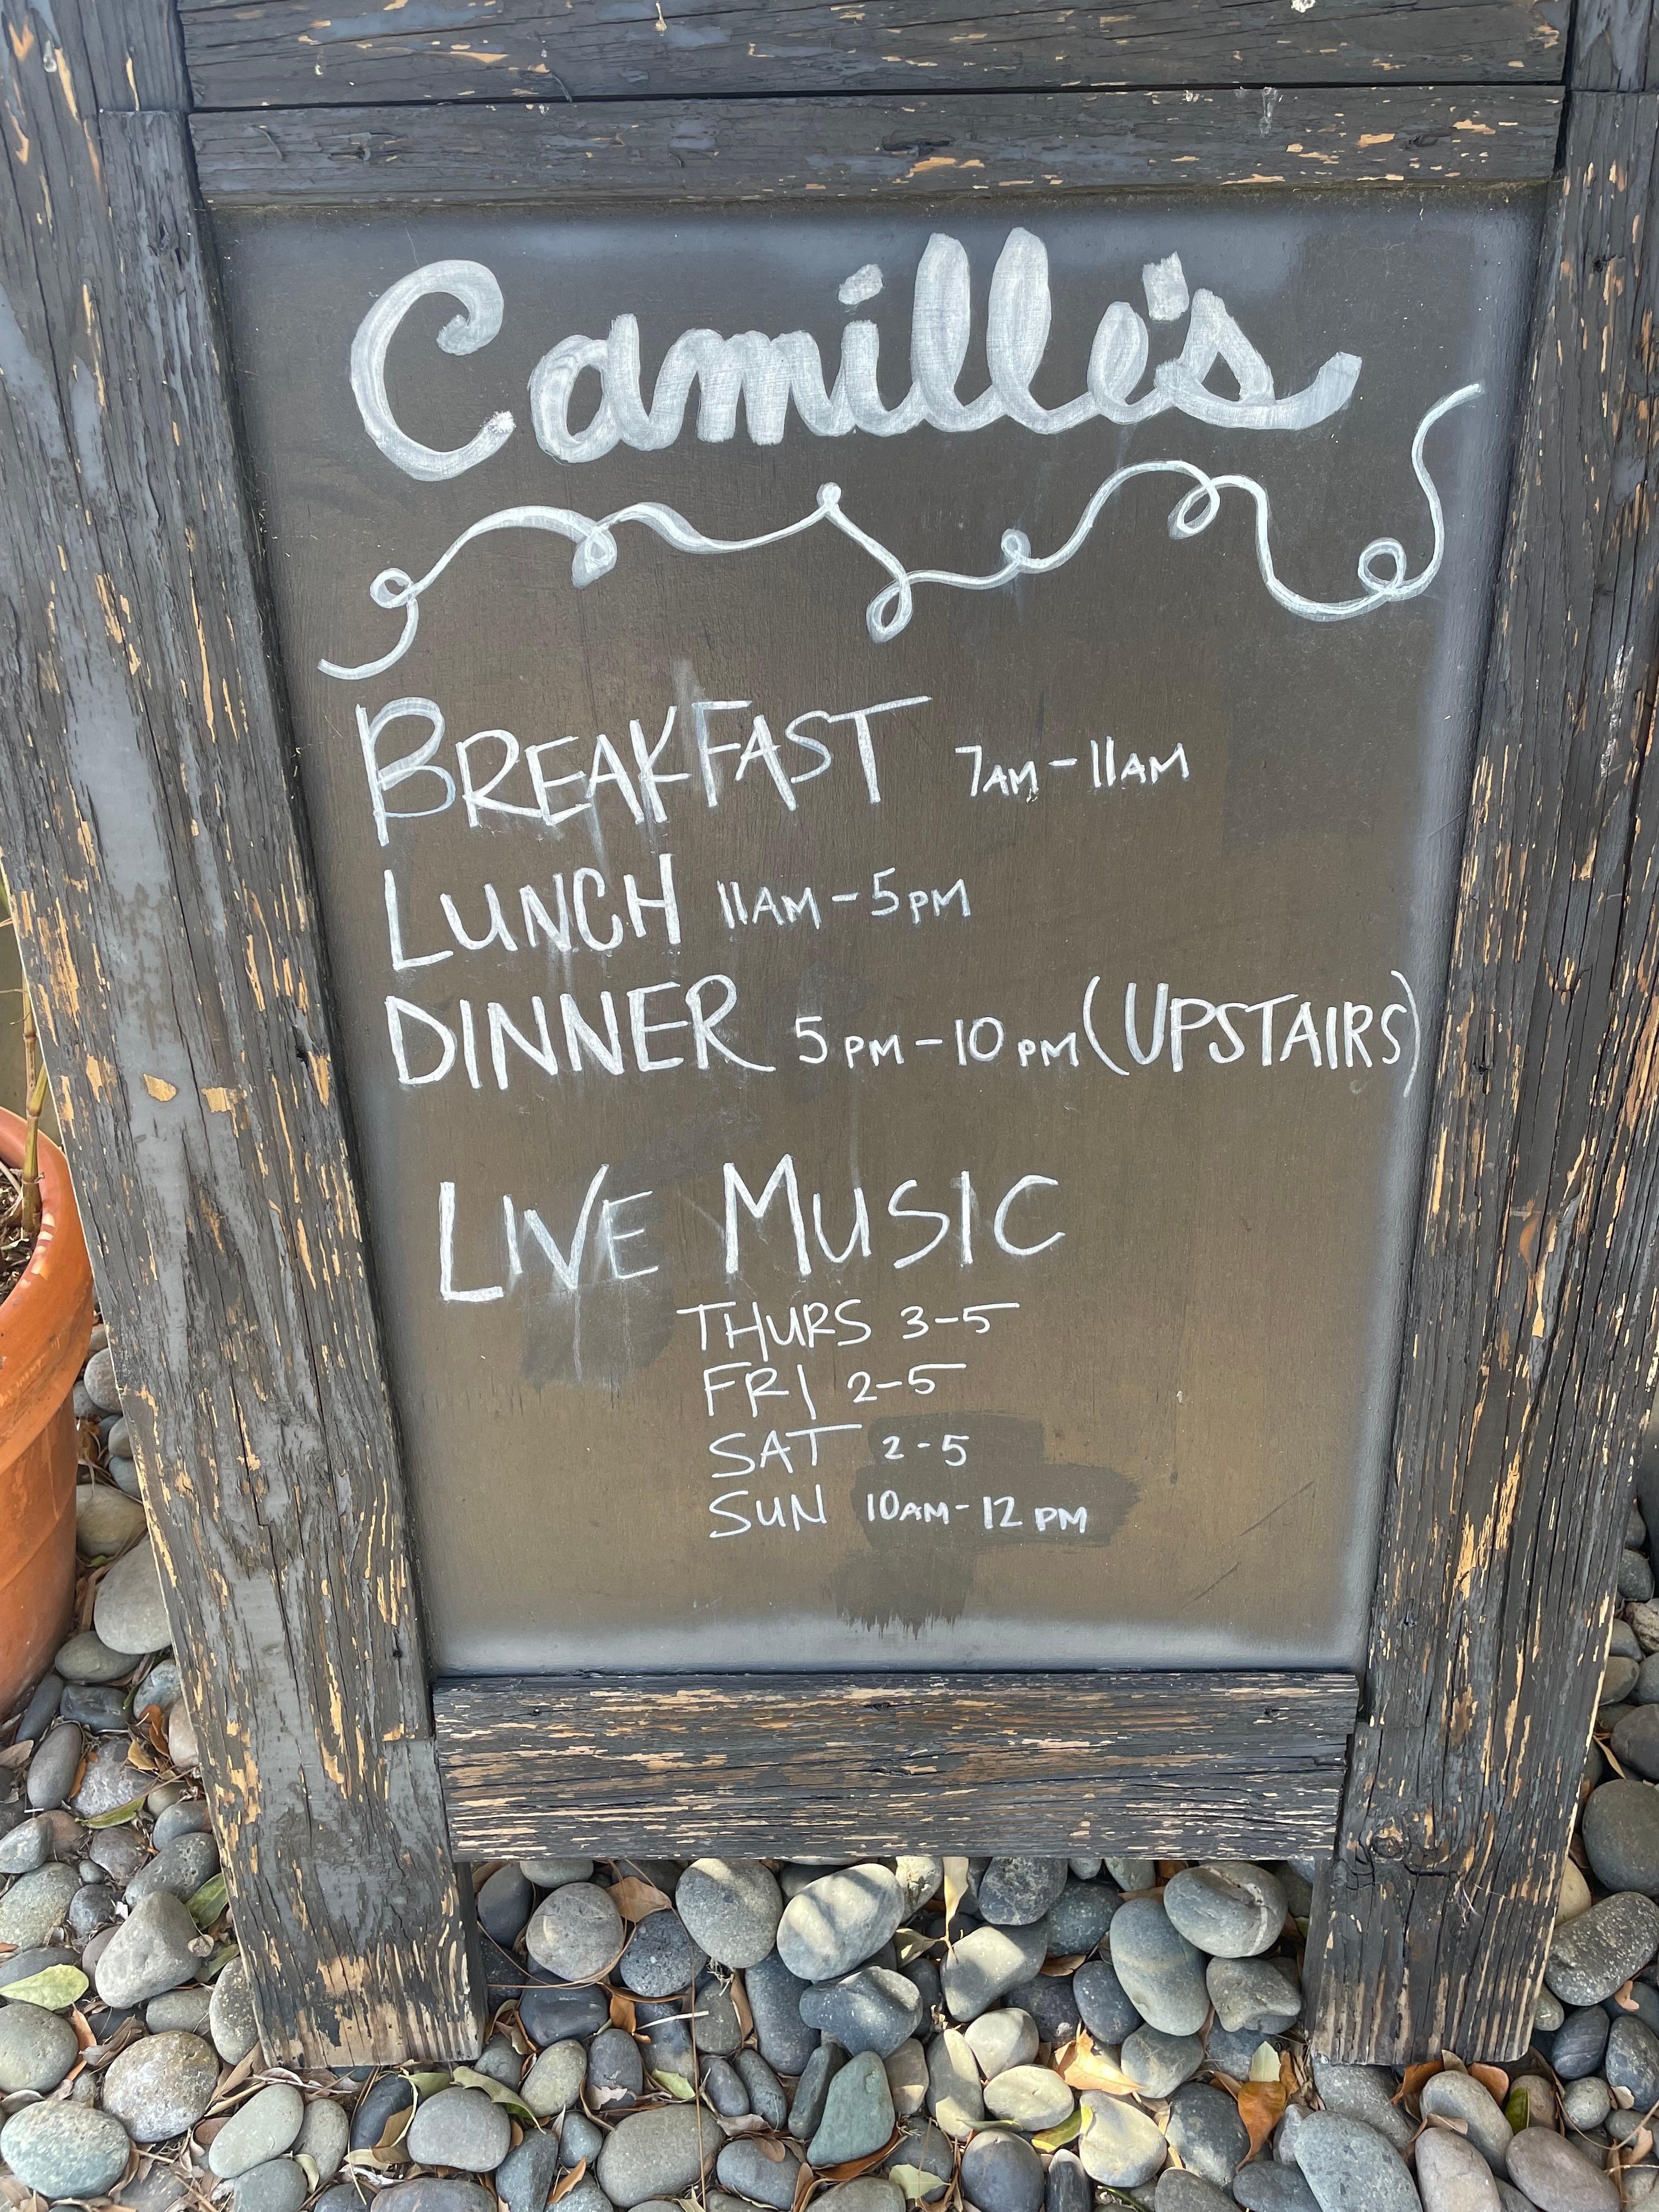 Camille's
BREAKFAST 7AM-11AM
LUNCH 11AM-5PM
DINNER 5PM-10PM (UPSTAIRS)
LIVE MUSIC
THURS 3-5
FRI 2-5
SAT 2-5
SUN 10AM-12PM